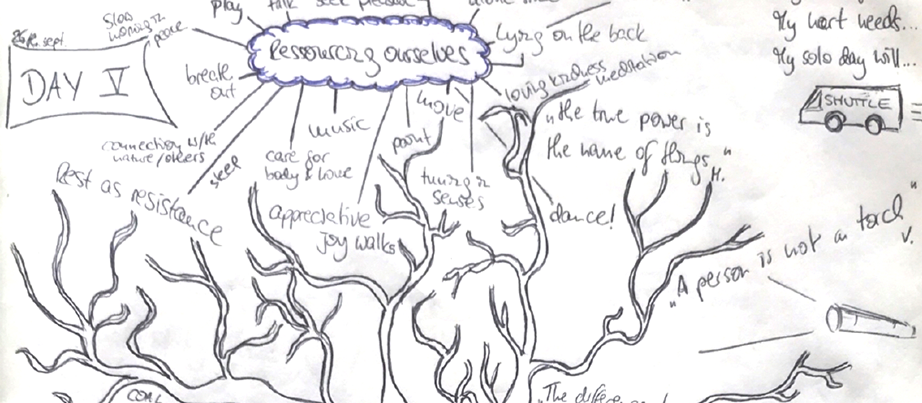 play
Slow
26. sept.
peace
DAY V
Ressourcing ourselves
lying on the back
My heart needs...
My solo day will...
SHUTTLE
break
out
loving kindness meditation
move
music
paint
"the true power is
the name of things."
H.
connection w/the
nature/others
sleep
care for
body & love
tuning in
senses
Rest as resistance
appreciative
joy walks
dance!
"A person is not a
V.
"The